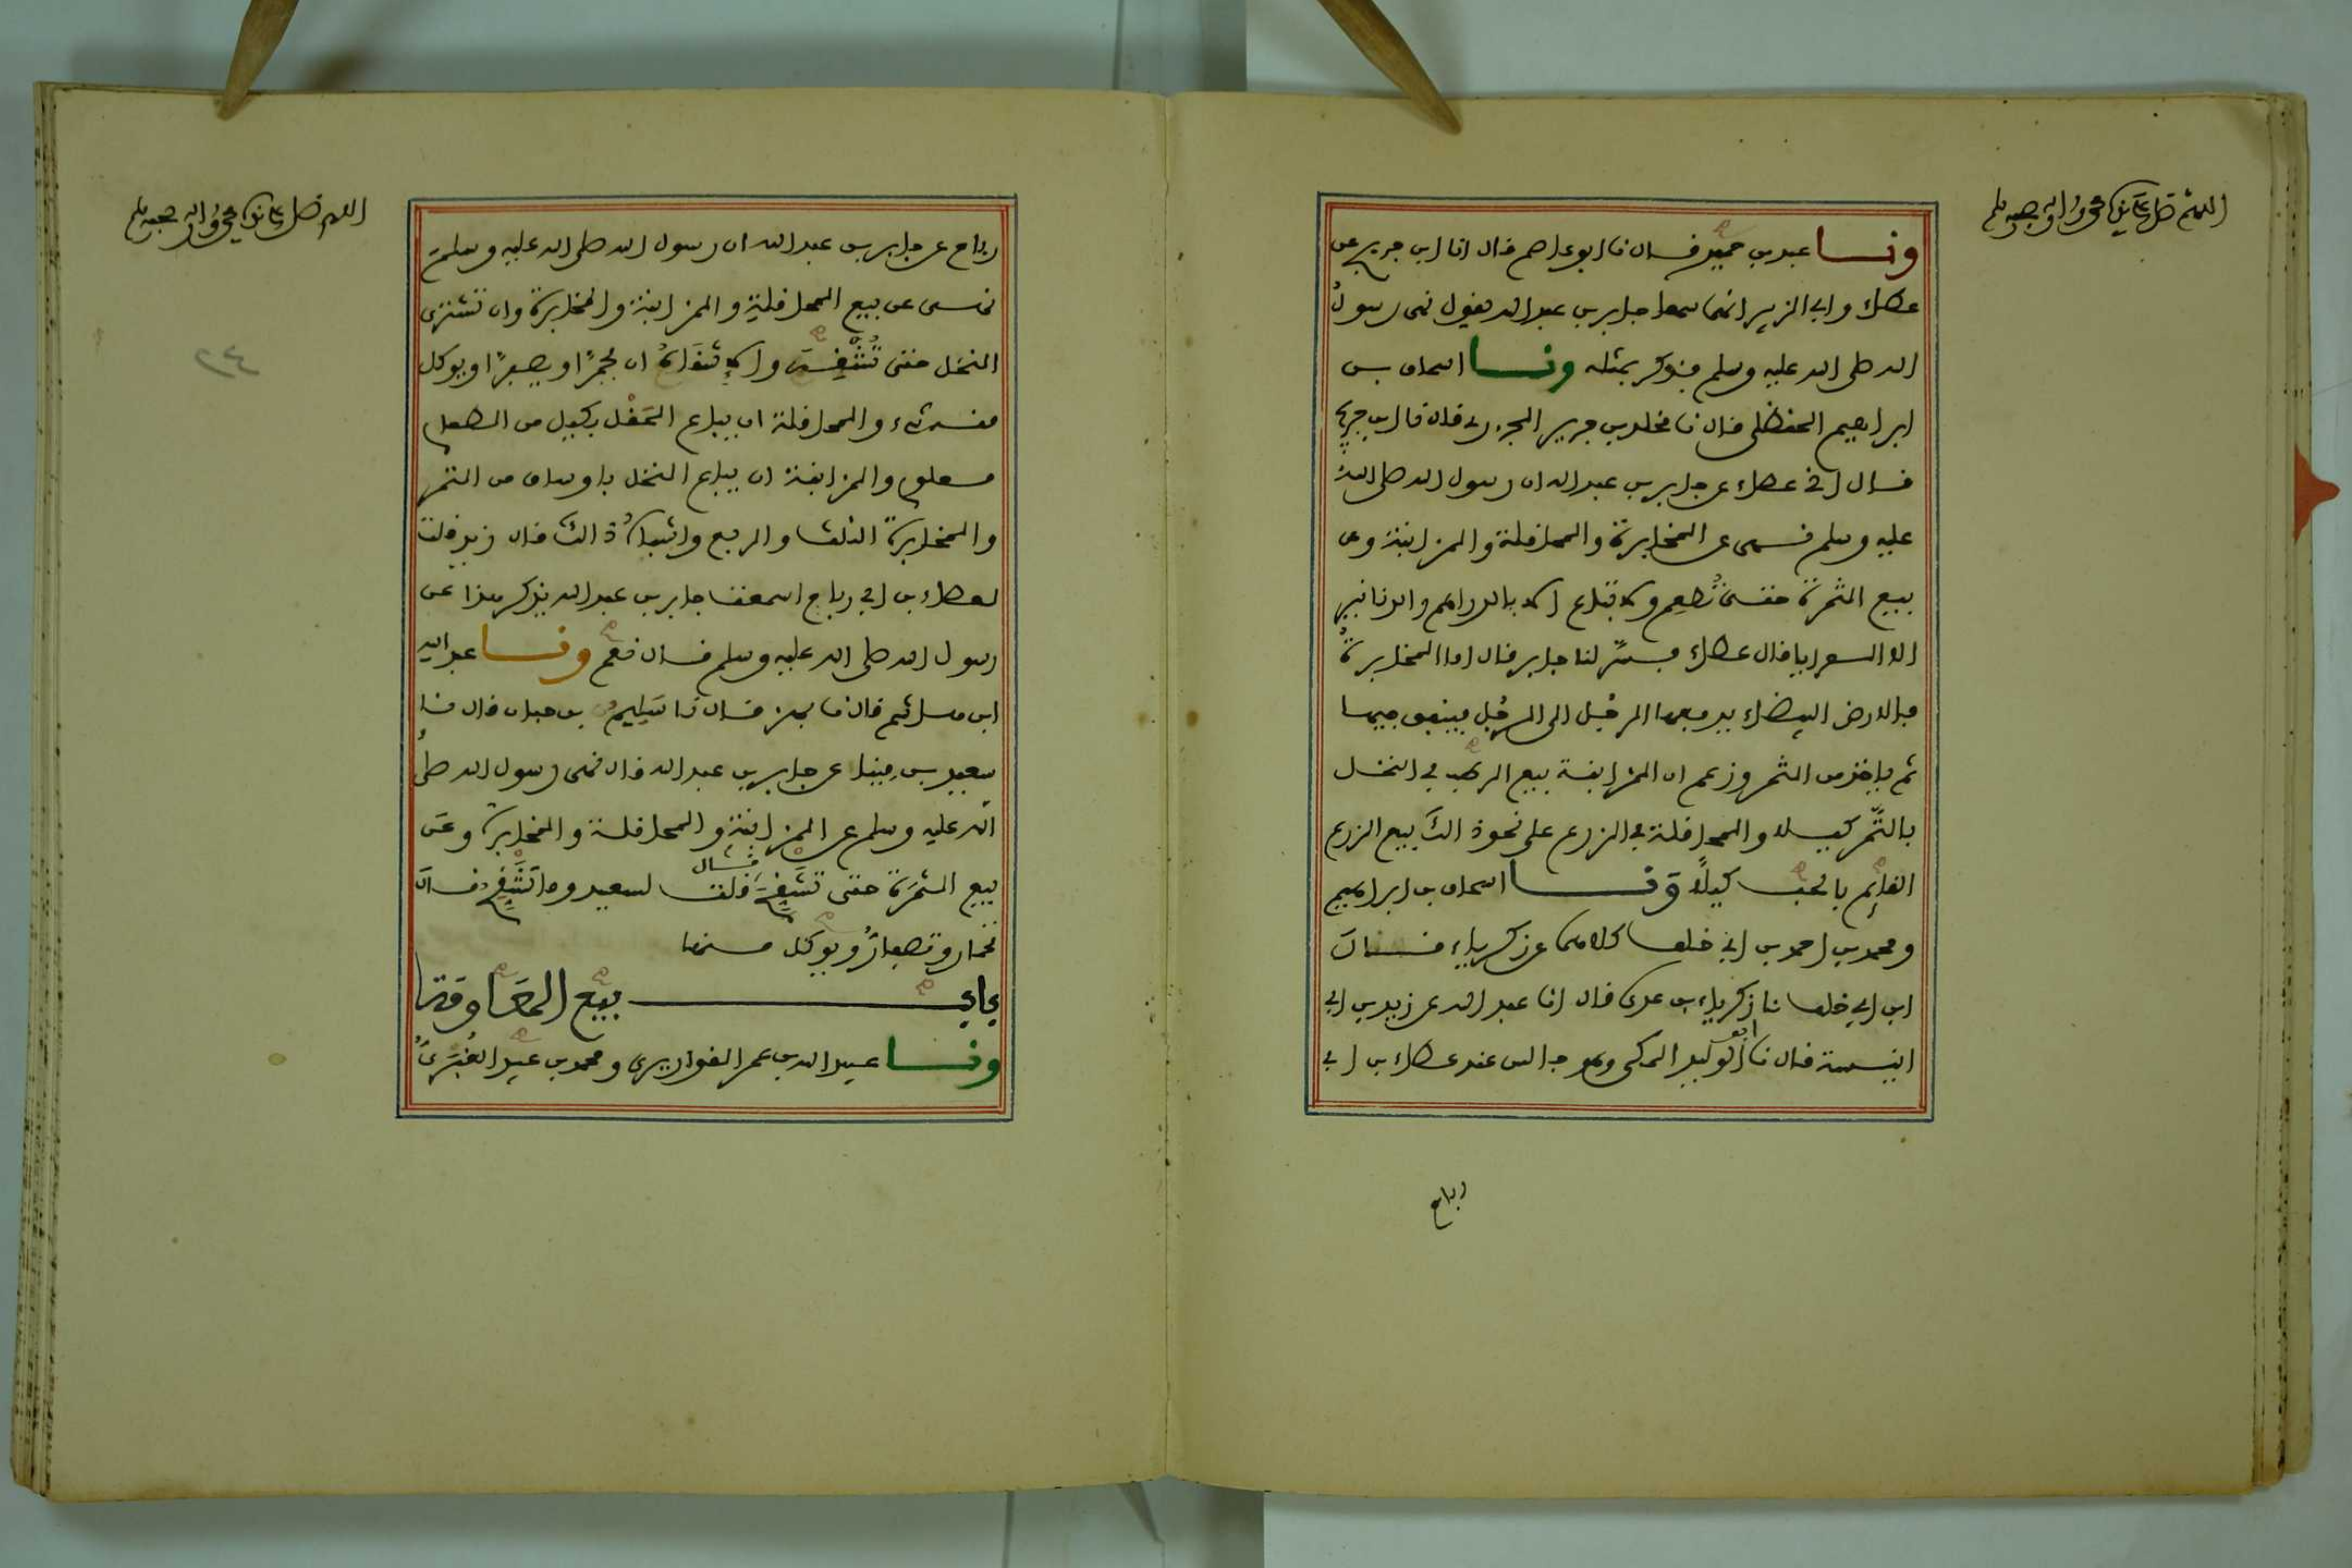 اللهم صل على نبيك محمد وءاله وصحبه وسلم
ونا عبد بن حميد قال نا ابو عاصم قال انا ابن جريج عن
عطاء وابي الزبير انهما سمعا جابر بن عبد الله يقول نهى رسول
الله صلى الله عليه وسلم فذكر بمثله ونا اسحاق بن
ابراهيم الحنظلي قال نا مخلد بن جرير الجزري قال نا ابن جريج
قال اني عطاء عن جابر بن عبد الله ان رسول الله صلى الله
عليه وسلم نهى عن المخابرة والمحاقلة والمزابنة وعن
بيع الثمرة حتى تُطعِم ولا تباع الا بالدراهم والدنانير
الا العرايا قال عطاء فسّر لنا جابر قال اما المخابرةُ
فالارض البيضاء يدفعها الرجل الى الرجُل فينفق فيها
ثم ياخذ من الثمر وزعم ان المزابنة بيع الرطب في النخل
بالتَّمر كيلا والمحاقلة في الزرع على نحو ذالك بيع الزرع
القائِم بالحب كيلًا ونا اسحاق بن ابراهيم
ومحمد بن احمد بن ابي خلف كلاهما عن زكرياء قال
ابن ابي خلف نا زكرياء بن عدى قال انا عبد الله عن زيد بن ابي
انيسة قال نا ابو الوليد المكي وهو جالس عند عطاء بن ابي
رباح
اللهم صل على نبيك محمد وءاله وصحبه وسلم
رباح عن جابر بن عبد الله ان رسول الله صلى الله عليه وسلم
نهى عن بيع المحاقلة والمزابنة والمخابرة وان تشترى
النخل حتى تُشْقِه والاشقاهُ ان يحمرَّ او يصفرَّ او يوكل
منه شيء والمحاقلة ان يباع الحَقْل بكيل من الطعام
معلوم والمزابنة ان يباع النخل باوساق من التمر
والمخابرة الثلث والربع واشباهُ ذالك قال زيد قلت
لعطاء بن ابي رباح اسمعت جابر بن عبد الله يذكر هذا عن
رسول الله صلى الله عليه وسلم قال نعم ونا عبد الله
ابن هاشم قال نا بهز قال نا سَلِيم بن حبان قال نا
سعيد بن مِينا عن جابر بن عبد الله قال نهى رسول الله صلى
الله عليه وسلم عن المزابنة والمحاقلة والمخابرة وعن
بيع الثمرة حتى تشقح قال قلت لسعيد وما تشقح قال
تحمار وتصفارُّ ويوكل منها
باب بيع المعاوقة
ونا عبيد الله بن عمر القواريري ومحمد بن عبيد الغُبَريُّ
٢٤